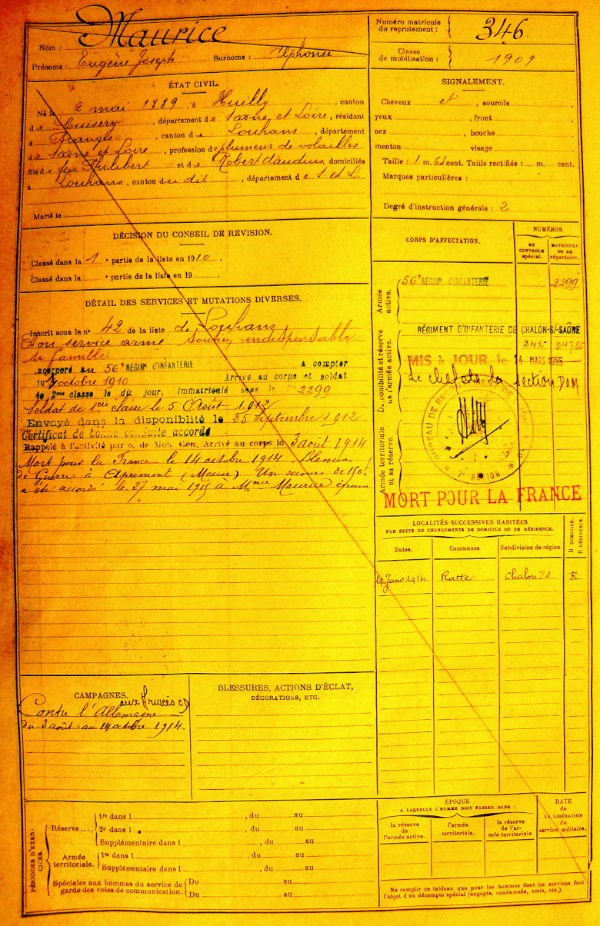 Nom : Maurice
Prénoms : Eugène Joseph Surnoms : Alphonse
Numéro matricule du recrutement : 346
Classe de mobilisation : 1909
ÉTAT CIVIL.
Né le 2 mai 1889, à Huilly, canton
de Cuisery, département de Saône et Loire, résidant
à Branges, canton de Louhans, département
de Saône et Loire, profession de plumeur de volailles
fils de feu Philibert et de Robert Claudine, domiciliés
à Louhans, canton du dit, département de S. et L.
Marié le
SIGNALEMENT.
Cheveux et , sourcils
yeux , front
nez , bouche
menton , visage
Taille : 1 m. 62 cent. Taille rectifiée : m. cent.
Marques particulières :
Degré d'instruction générale : 2
DÉCISION DU CONSEIL DE REVISION.
Classé dans la 1 e partie de la liste en 1910
Classé dans la e partie de la liste en 19
DÉTAIL DES SERVICES ET MUTATIONS DIVERSES.
Inscrit sous le n° 42 de la liste de Louhans
Bon service armé. Soutien indispensable
de famille
Incorporé au 56e RÉGIMt D'INFANTERIE à compter
du octobre 1910 Arrivé au corps et soldat
de 2me classe le dit jour, immatriculé sous le No 2299
Soldat de 1ère classe le 5 Août 1912
Envoyé dans la disponibilité le 25 Septembre 1912.
Certificat de bonne conduite accordé
Rappelé à l'activité par o. de Mob. Gén. Arrivé au corps le 3 août 1914
Mort pour la France le 14 octobre 1914 Blessures
de Guerre à Apremont (Meuse) Un secours de 150f
a été accordé le 27 mai 1915 à Mme Maurice épouse
CORPS D'AFFECTATION.
NUMÉROS
AU CONTRÔLE spécial.
MATRICULE ou du répertoire.
Armée active.
56e RÉGIMt D'INFANTERIE 2299
Disponibilité et réserve de l'armée active.
RÉGIMENT D'INFANTERIE DE CHALON-S/-SAÔNE
MIS à JOUR, le 14 MARS
Le chef de la section
Armée territoriale et sa réserve.
MORT POUR LA FRANCE
LOCALITÉS SUCCESSIVES HABITÉES
PAR SUITE DE CHANGEMENTS DE DOMICILE OU DE RÉSIDENCE.
Dates. Communes Subdivision de région. D DOMICILE. R RÉSIDENCE.
Janv 1914 Ratte Chalon s/s R
CAMPAGNES.
aux Armées
Contre l'Allemagne
du 3 août au 14 octobre 1914.
BLESSURES, ACTIONS D'ÉCLAT,
DÉCORATIONS, ETC.
PÉRIODES D'EXERCICES.
Réserve....
1re dans l , du au
2e dans l , du au
Supplémentaire dans l , du au
Armée territoriale.
1re dans l , du au
Supplémentaire dans l , du au
Spéciales aux hommes du service de garde des voies de communication.
Du au
Du au
ÉPOQUE
A LAQUELLE L'HOMME DOIT PASSER DANS :
la réserve de l'armée active.
l'armée territoriale.
la réserve de l'armée territoriale.
DATE de LA LIBÉRATION du service militaire.
Ne remplir ce tableau que pour les hommes dont les services font
l'objet d'un décompte spécial (engagés, condamnés, omis, etc.)